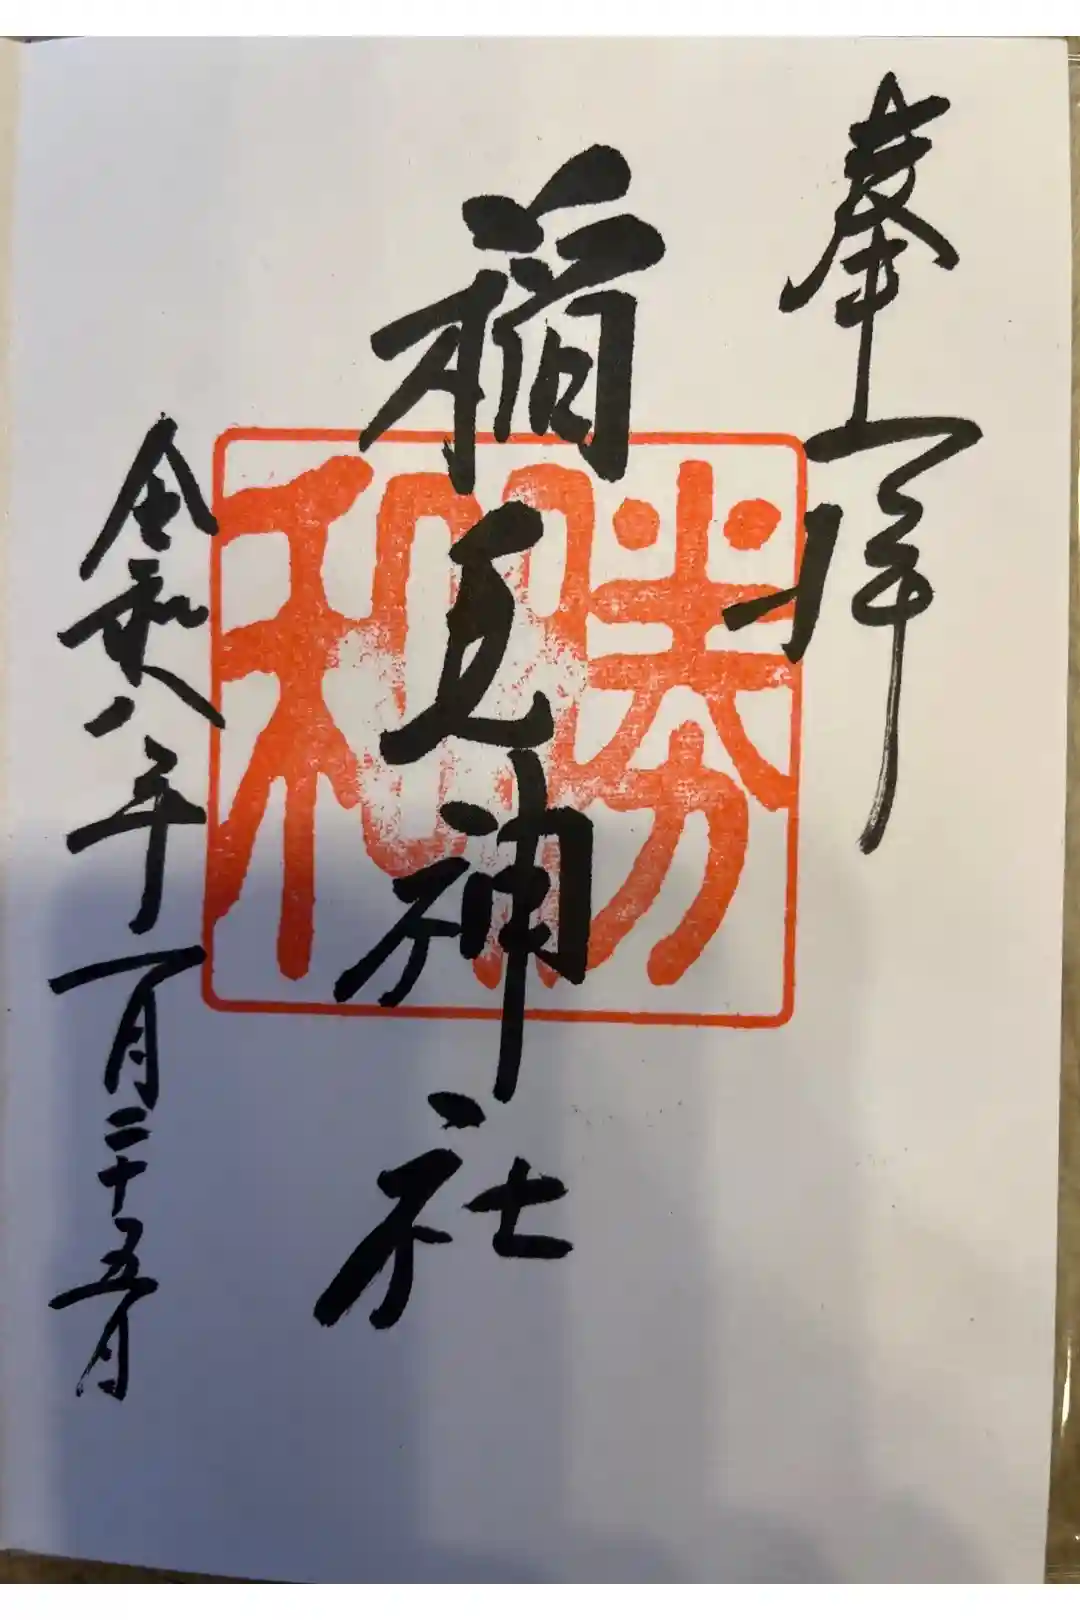 奉拝
稲見神社
令和八年一月二十五日
勝和